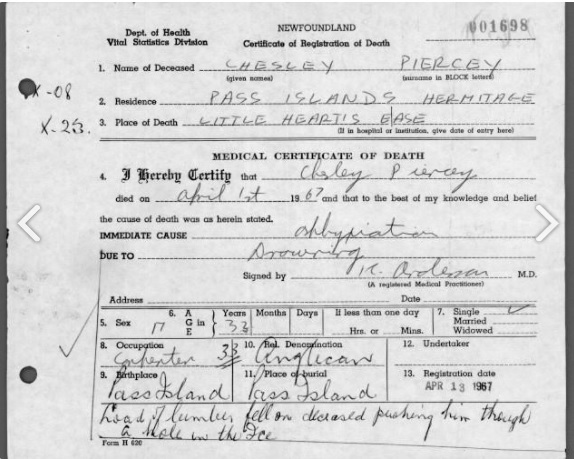 NEWFOUNDLAND
001698
Dept. of Health
Vital Statistics Division
Certificate of Registration of Death
1. Name of Deceased CHESLEY PIERCEY
(given names) (surname in BLOCK letters)
X-08
2. Residence PASS ISLANDS HERMITAGE
X-23.
3. Place of Death LITTLE HEART'S EASE
(If in hospital or institution, give date of entry here)
MEDICAL CERTIFICATE OF DEATH
4. I Hereby Certify that Chesley Piercey
died on April 1st 1967 and that to the best of my knowledge and belief
the cause of death was as herein stated.
IMMEDIATE CAUSE
DUE TO Drowning
Signed by M.D.
(A registered Medical Practitioner)
Address Date
5. Sex M 6. AGE in Years Months Days If less than one day 7. Single ✓
33 Hrs. or Mins. Married
Widowed
8. Occupation 33 10. Rel. Denomination 12. Undertaker
Carpenter Anglican
9. Birthplace 11. Place of burial 13. Registration date
Pass Island Pass Island APR 13 1967
Load of lumber fell on deceased pushing him though
a hole in the Ice
Form H 620